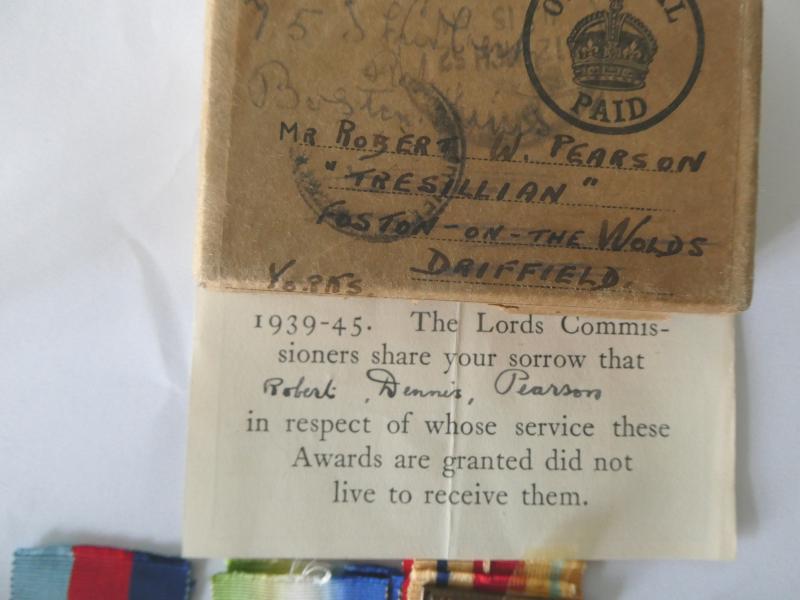 OFFICIAL
PAID
MR ROBERT W. PEARSON
"TRESILLIAN"
FOSTON-ON-THE WOLDS
DRIFFIELD.
YORKS
1939-45. The Lords Commis-
sioners share your sorrow that
Robert, Dennis, Pearson
in respect of whose service these
Awards are granted did not
live to receive them.